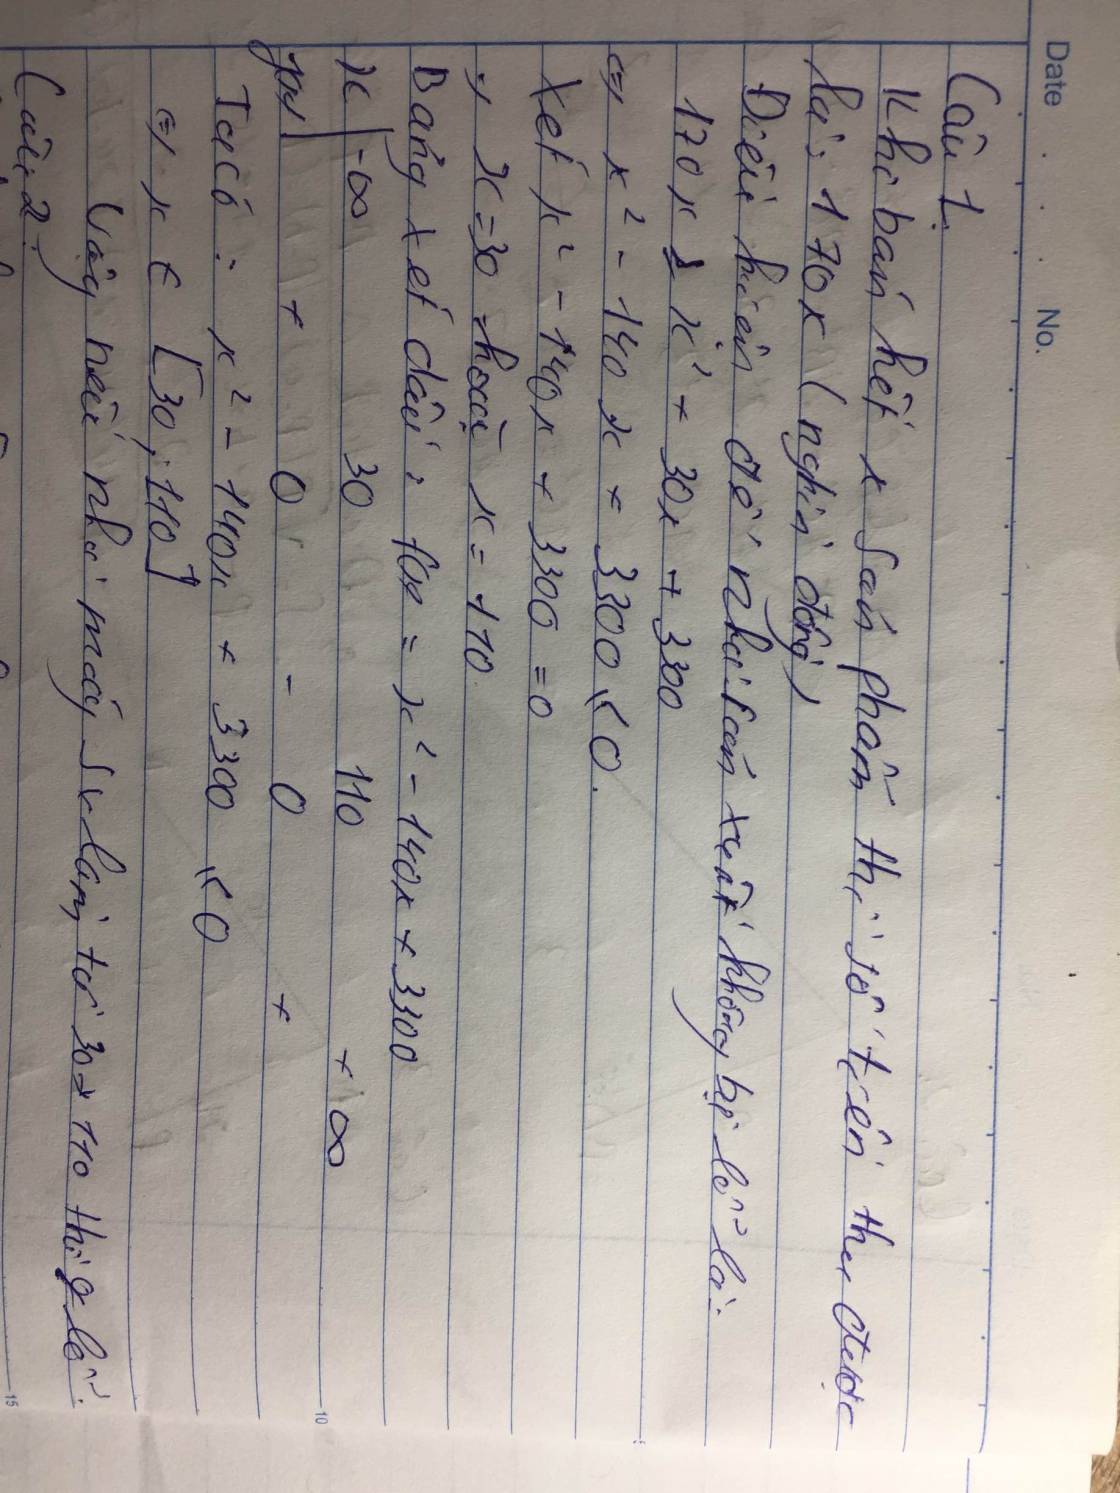 Date No.
Câu 1.
Khi bán hết x sản phẩm thì số tiền thu được
là: 170x (nghìn đồng)
Điều kiện để nhà sản xuất không bị lỗ là:
170x ≥ x² + 30x + 3300
⇔ x² - 140x + 3300 ≤ 0.
Xét x² - 140x + 3300 = 0
⇒ x = 30 hoặc x = 110.
Bảng xét dấu: f(x) = x² - 140x + 3300
x -∞ 30 110 +∞
f(x) + 0 - 0 +
Ta có: x² - 140x + 3300 ≤ 0
⇔ x ∈ [30; 110]
Vậy nếu nhà máy sx làm từ 30 → 110 thì lỗ.
Câu 2.
5
10
15